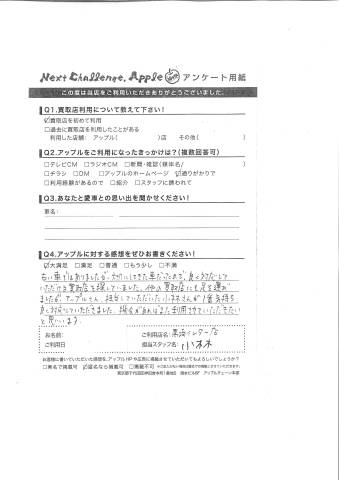 Next Challenge, Apple アンケート用紙
この度は当店をご利用いただきありがとうございました。
Q1.買取店利用について教えて下さい！
☑買取店を初めて利用
□過去に買取店を利用したことがある
利用した店舗: アップル( )店 その他( )
Q2.アップルをご利用になったきっかけは？(複数回答可)
□テレビCM □ラジオCM □新聞・雑誌(媒体名/ )
□チラシ □DM □アップルのホームページ ☑通りがかりで
□利用経験があるので □紹介 □スタッフに誘われて
Q3.あなたと愛車との思い出を聞かせください！
車名:
Q4.アップルに対する感想をぜひお書きください！
☑大満足 □満足 □普通 □もう少し □不満
古い車ではありましたが、大切にしてきた車だったので、良く対応して
いただける買取店を探していました。他の買取店にも足を運び
ましたが、アップルさん、担当していただいた小林さんが1番気持ち
良く対応していただきました。機会があればまた利用させていただきたい
と思います。
お名前: ご利用店名: インター店
ご利用日 担当スタッフ名: 小林
お客様に書いていただいた感想を、アップルHPや広告に掲載させていただいてもよろしいでしょうか？
□実名で掲載可 ☑匿名なら掲載可 □掲載不可